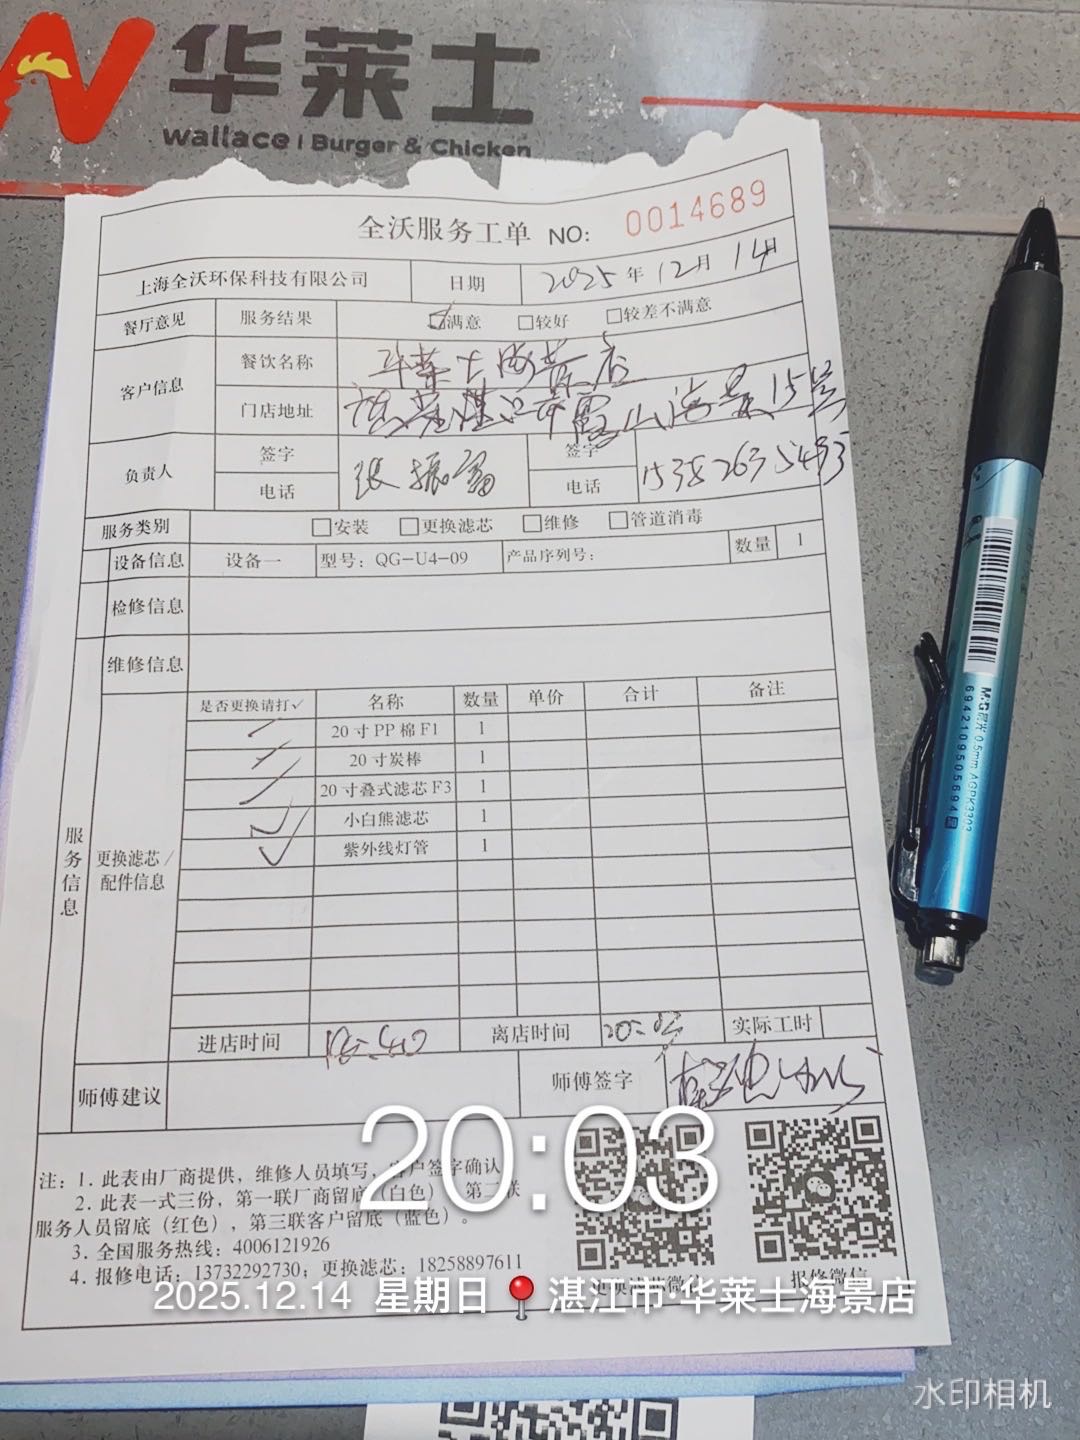 华莱士
Wallace | Burger & Chicken
全沃服务工单 NO: 0014689
上海全沃环保科技有限公司 日期 2025年12月14日
餐厅意见 服务结果 ☑满意 □较好 □较差不满意
客户信息 餐饮名称 华莱士海景店
门店地址 湛江市霞山海景15号
负责人 签字 张振富 签字
电话 电话 15382635493
服务类别 □安装 □更换滤芯 □维修 □管道消毒
设备信息 设备一 型号：QG-U4-09 产品序列号： 数量 1
检修信息
维修信息
服务信息
更换滤芯/配件信息
是否更换请打✓ 名称 数量 单价 合计 备注
✓ 20寸PP棉F1 1
✓ 20寸炭棒 1
✓ 20寸叠式滤芯F3 1
✓ 小白熊滤芯 1
✓ 紫外线灯管 1
进店时间 离店时间 实际工时
师傅建议 师傅签字
20:03
注：1. 此表由厂商提供，维修人员填写，客户签字确认
2. 此表一式三份，第一联厂商留底（白色），第二联
服务人员留底（红色），第三联客户留底（蓝色）。
3. 全国服务热线：4006121926
4. 报修电话：13732292730；更换滤芯：18258897611
更换滤芯微信 报修微信
2025.12.14 星期日 湛江市·华莱士海景店
水印相机
M&G 晨光 0.5mm AGPK3303
6942109505694